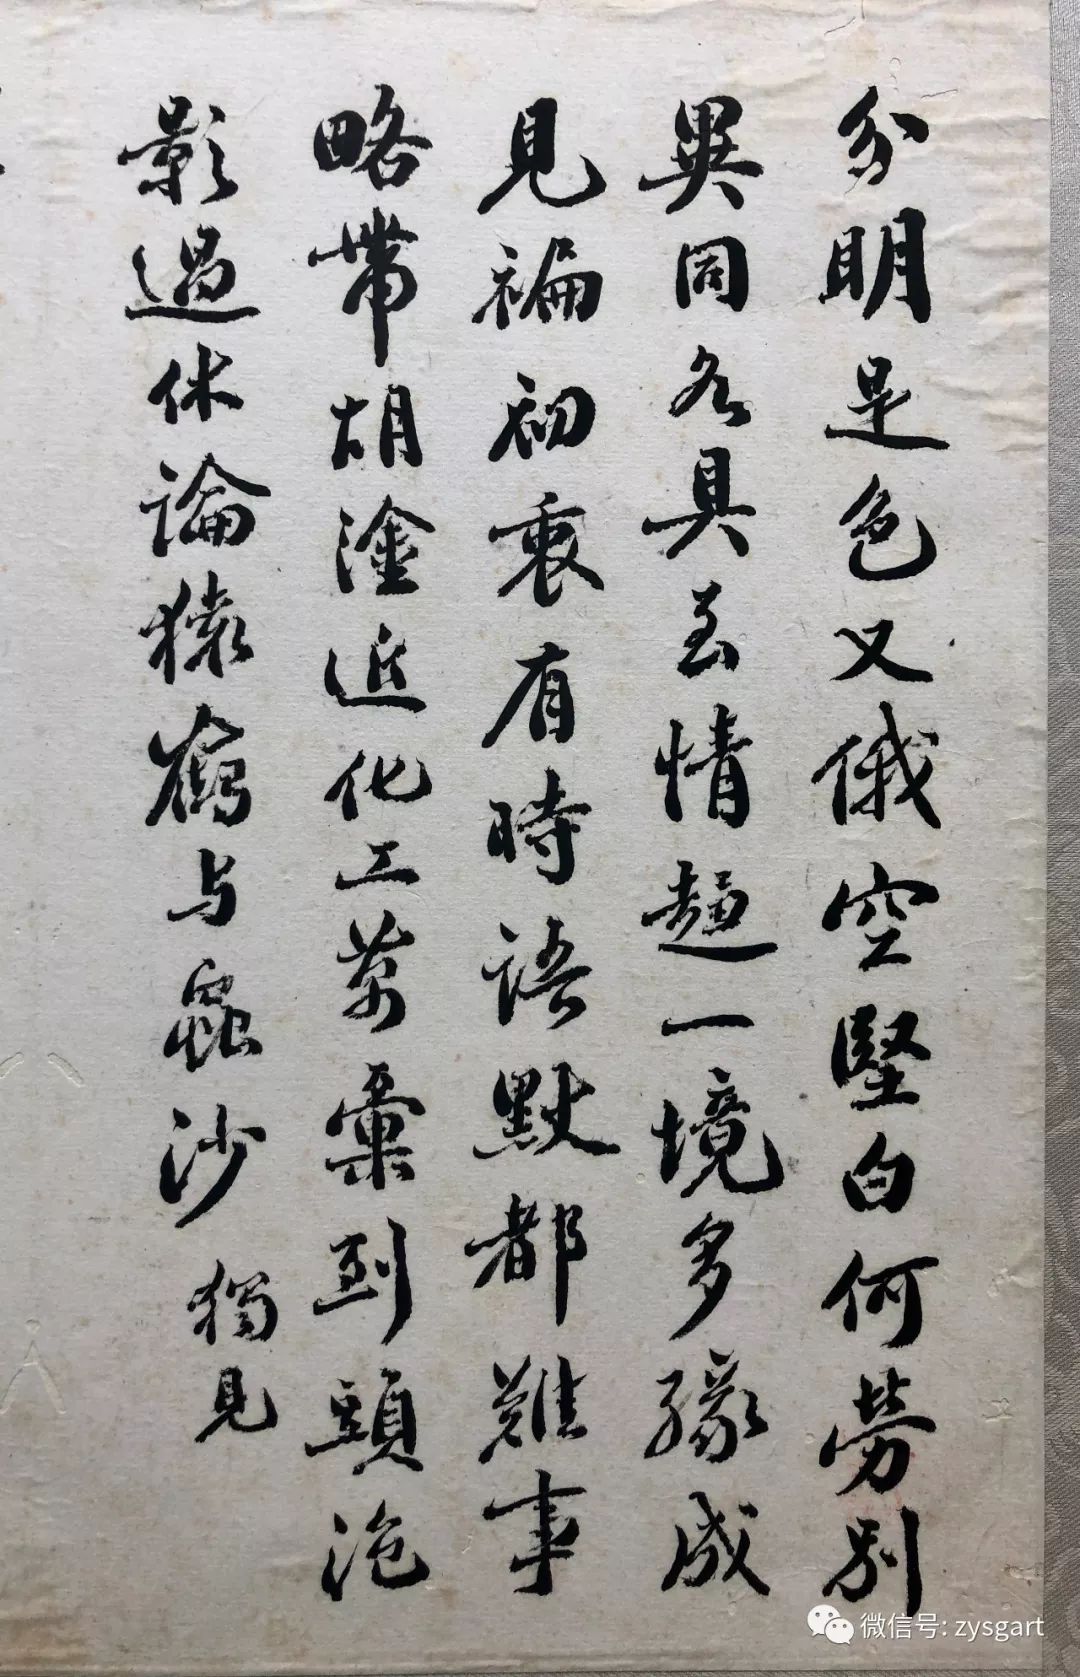 分明是色又俄空堅白何勞別
異同各具至情超一境多緣成
見褊初衷有時語默都難事
略帶胡塗近化工萬彙到頭泡
影過休論猿鶴与蟲沙 獨見
微信号: zysgart